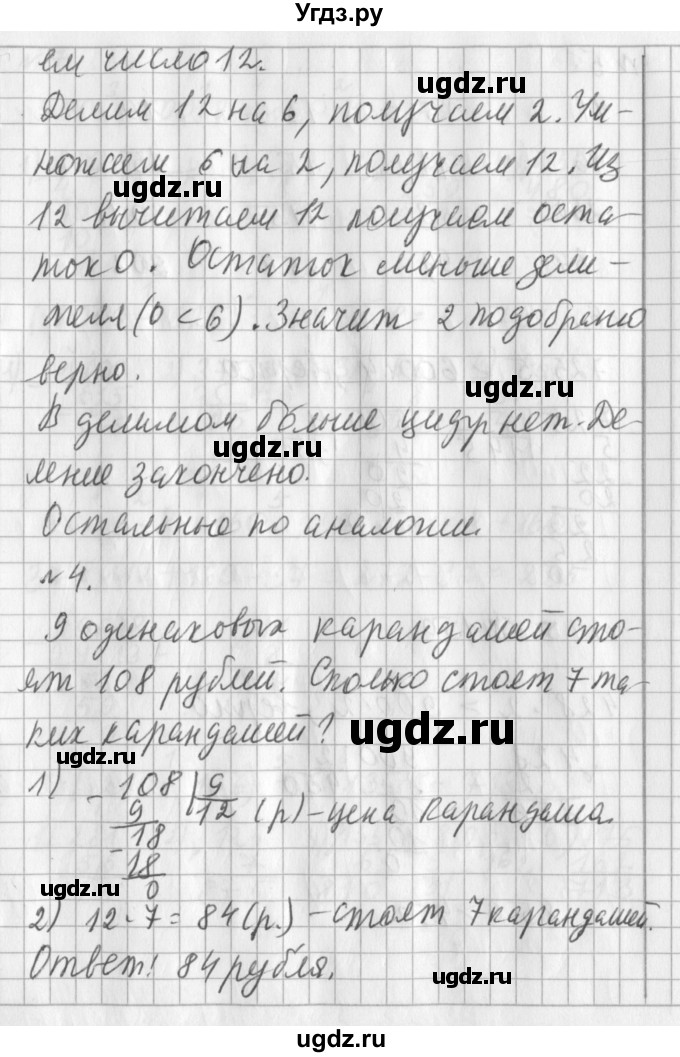 Угдз.ру
ем число 12.
Делим 12 на 6, получаем 2. Ум-
ножаем 6 на 2, получаем 12. Из
ugdz.ru
12 вычитаем 12 получаем оста-
ток 0. Остаток меньше дели-
ugdz.ru
теля (0 < 6). Значит 2 подобрано
верно.
ugdz.ru
В делимом больше цифр нет. Де-
ugdz.ru
ление закончено.
Остальные по аналогии.
№4.
9 одинаковых карандашей сто-
ят 108 рублей. Сколько стоят 7 та-
ких карандашей?
ugdz.ru
ugdz.ru
1) - 108 | 9
9 12 (р) – цена карандаша.
- 18
18
ugdz.ru
0
2) 12 · 7 = 84 (р.) – стоят 7 карандашей.
Ответ: 84 рубля.
ugdz.ru
ugdz.ru